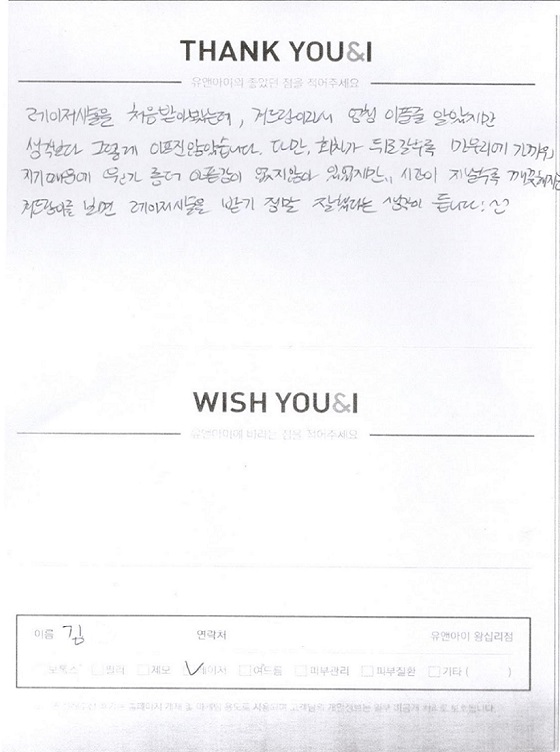 THANK YOU&I
유앤아이의 좋았던 점을 적어주세요
레이저시술을 처음받아보았는데, 여드름이라서 엄청 아픔줄 알았지만
생각보다 그렇게 아프진않았습니다. 다만, 회차가 뒤로갈수록 마무리에 가까워
지기때문에 좀더 없지않아 있었지만.. 시간이 지날수록 깨끗해지는
보면 레이저시술을 받기 정말 잘했다는 생각이 듭니다:^^
WISH YOU&I
유앤아이에 바라는 점을 적어주세요
이름 김 연락처 유앤아이 왕십리점
보톡스 필러 제모 레이저 여드름 피부관리 피부질환 기타 ( )